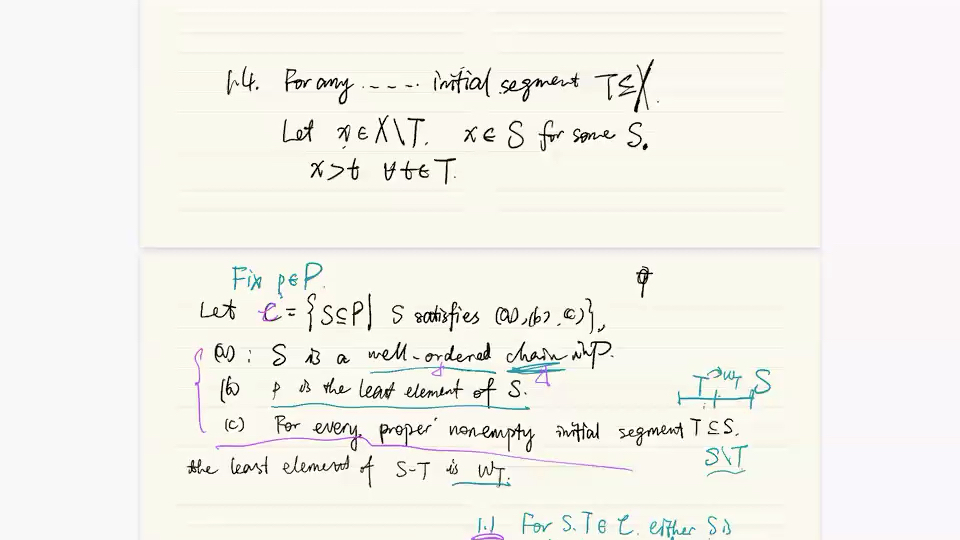 1.4. For any ..... initial segment T⊆X.
Let x∈X\T. x∈S for some S.
x>t ∀t∈T.
Fix p∈P.
Let C = {S⊆P| S satisfies (a), (b), (c)},
(a): S is a well-ordered chain in P.
(b) p is the least element of S.
T → w_T S
(c) For every proper nonempty initial segment T⊆S.
S\T
the least element of S-T is w_T.
1.1 For S.T∈C. either S is